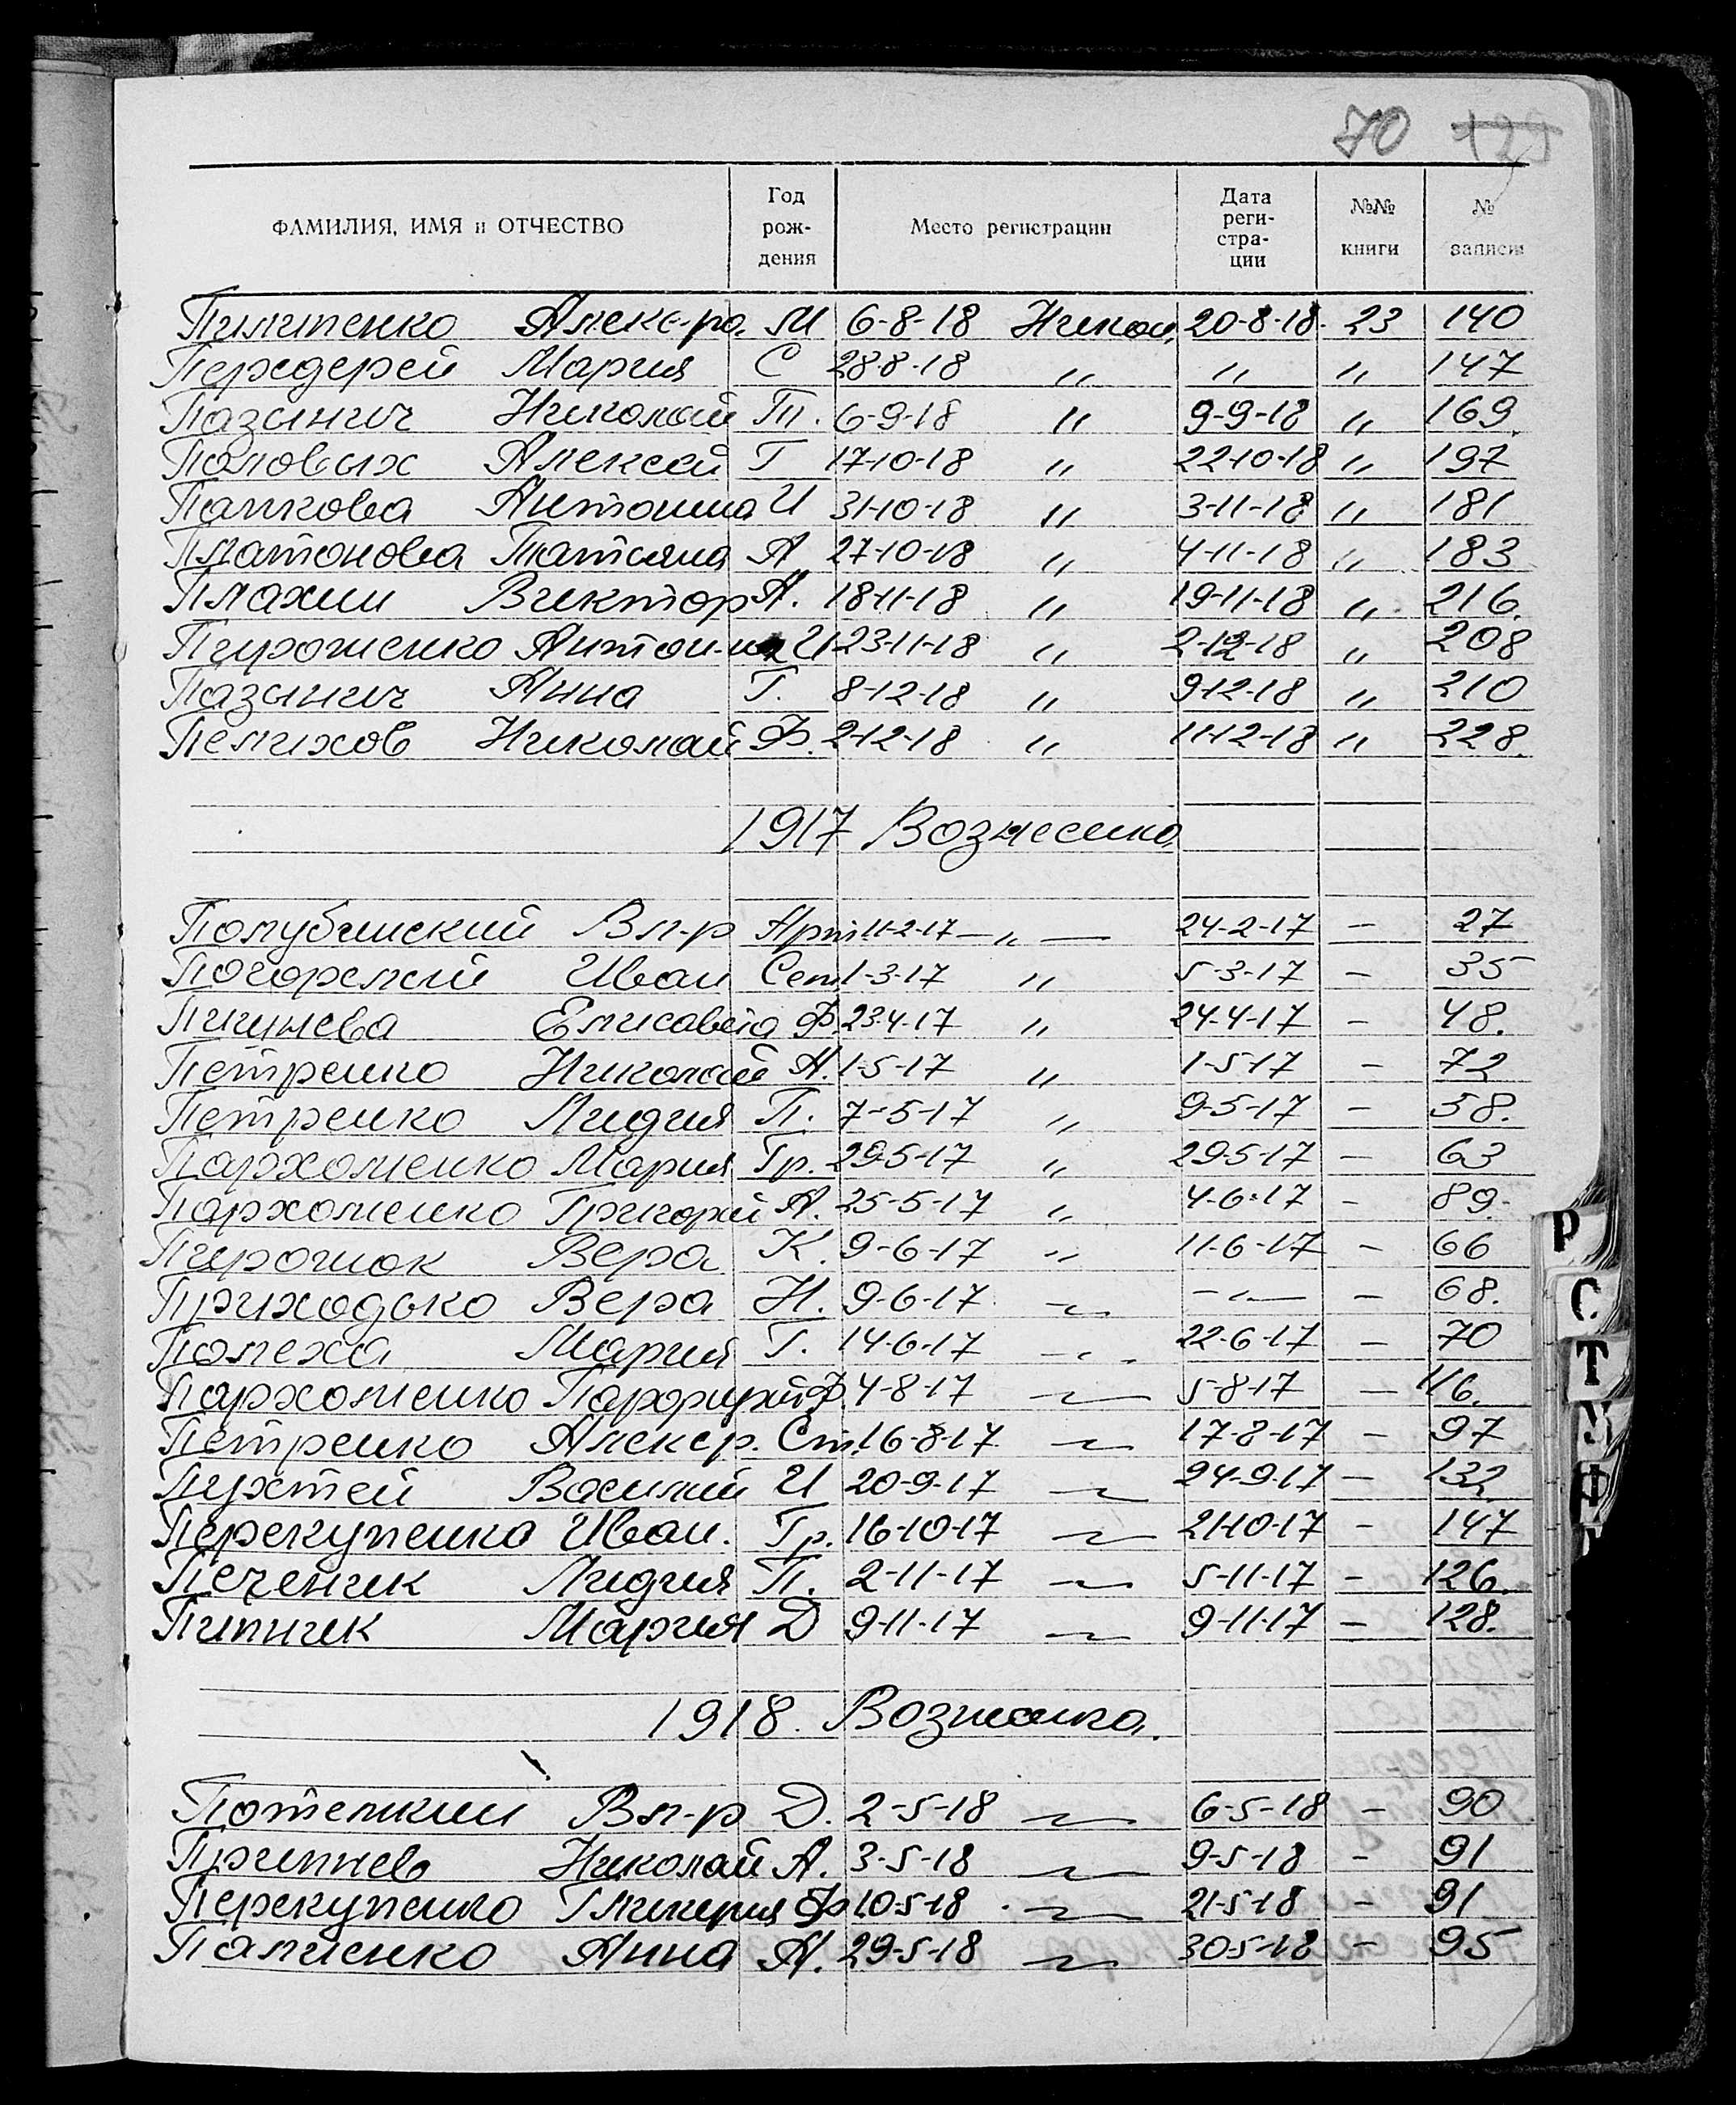 70 129
ФАМИЛИЯ, ИМЯ и ОТЧЕСТВО Год рож- дения Место регистрации Дата реги- стра- ции №№ книги № записи
Пилипенко Алекс-ра. М 6-8-18 Никол. 20-8-18. 23 140
Передерей Мария С 28-8-18 〃 〃 〃 147
Пазынич Николай Т. 6-9-18 〃 9-9-18 〃 169.
Половых Алексей Г 17-10-18 〃 22-10-18 〃 197
Папкова Антонина И 31-10-18 〃 3-11-18 〃 181
Платонова Татьяна А 27-10-18 〃 4-11-18 〃 183
Плахин Виктор А. 18-11-18 〃 19-11-18 〃 216.
Пироженко Антонина И 23-11-18 〃 2-12-18 〃 208
Пазынич Анна Г. 8-12-18 〃 9-12-18 〃 210
Пелихов Николай Ф. 2-12-18 〃 11-12-18 〃 228.
1917 Вознесенка
Полубинский Вл-р Арт. 11-2-17 — 〃 — 24-2-17 — 27
Погорелый Иван Сем. 1-3-17 〃 5-3-17 — 35
Пигунева Елисавета Ф. 23-4-17 〃 24-4-17 — 48.
Петренко Николай А. 1-5-17 〃 1-5-17 — 72
Петренко Лидия П. 7-5-17 〃 9-5-17 — 58.
Пархоменко Мария Гр. 29-5-17 〃 29-5-17 — 63
Пархоменко Григорий А. 25-5-17 〃 4-6-17 — 89.
Вера К. 9-6-17 〃 11-6-17 — 66
Приходько Вера Н. 9-6-17 〃 — 〃 — — 68.
Полеха Мария Г. 14-6-17 〃 22-6-17 — 70
Пархоменко Парфирий Ф. 4-8-17 〃 5-8-17 — 116.
Петренко Алекср. Ст. 16-8-17 〃 17-8-17 — 97
Пухтей Василий И 20-9-17 〃 24-9-17 — 132
Перекупенко Иван. Гр. 16-10-17 〃 21-10-17 — 147
Печеник Лидия П. 2-11-17 〃 5-11-17 — 126.
Пипник Мария Д 9-11-17 〃 9-11-17 — 128.
1918. Вознесенка.
Вл-р Д. 2-5-18 〃 6-5-18 — 90
Припнев Николай А. 3-5-18 〃 9-5-18 — 91
Перекупенко Гликерия Ф 10-5-18 〃 21-5-18 — 91
Палиенко Анна А. 29-5-18 〃 30-5-18 — 95
Р
С
Т
У
Ф